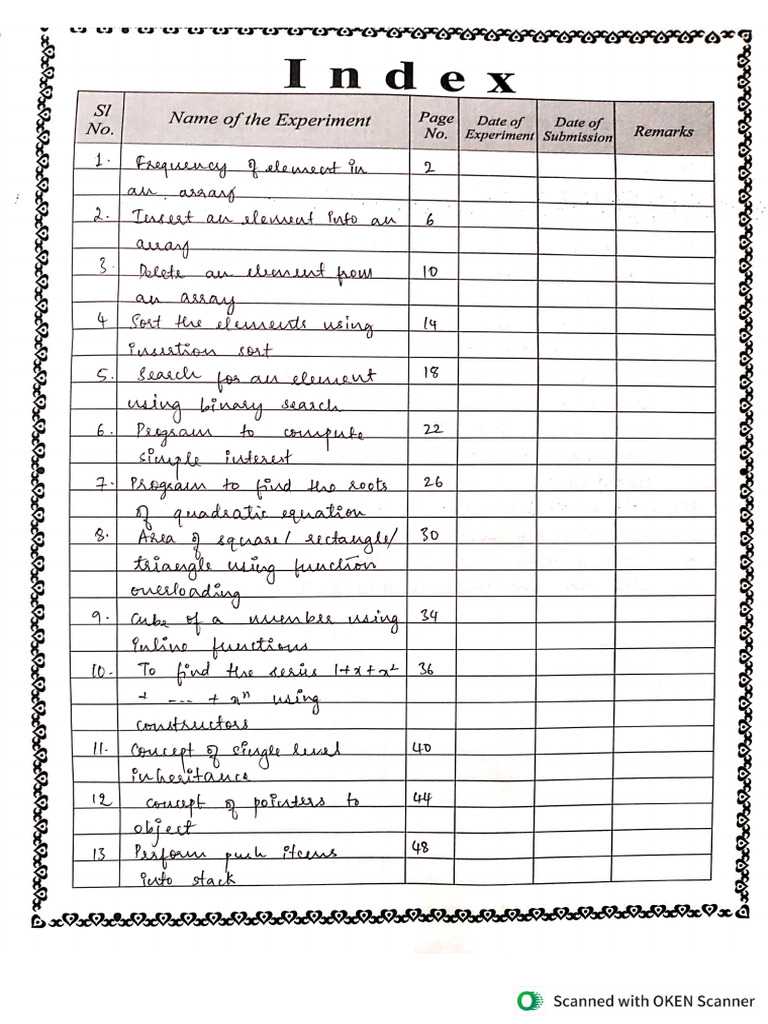 Index
Sl No. Name of the Experiment Page No. Date of Experiment Date of Submission Remarks
1. Frequency of element in 2
an array
2. Insert an element into an 6
array
3. Delete an element from 10
an array
4 Sort the elements using 14
insertion sort
5. Search for an element 18
using binary search
6. Program to compute 22
simple interest
7. Program to find the roots 26
of quadratic equation
8. Area of square/ rectangle/ 30
triangle using function
overloading
9. Cube of a number using 34
inline functions
10. To find the series 1+x+x² 36
+ --- + xⁿ using
constructors
11. Concept of single level 40
inheritance
12 concept of pointers to 44
object
13 Perform push items 48
into stack
Scanned with OKEN Scanner